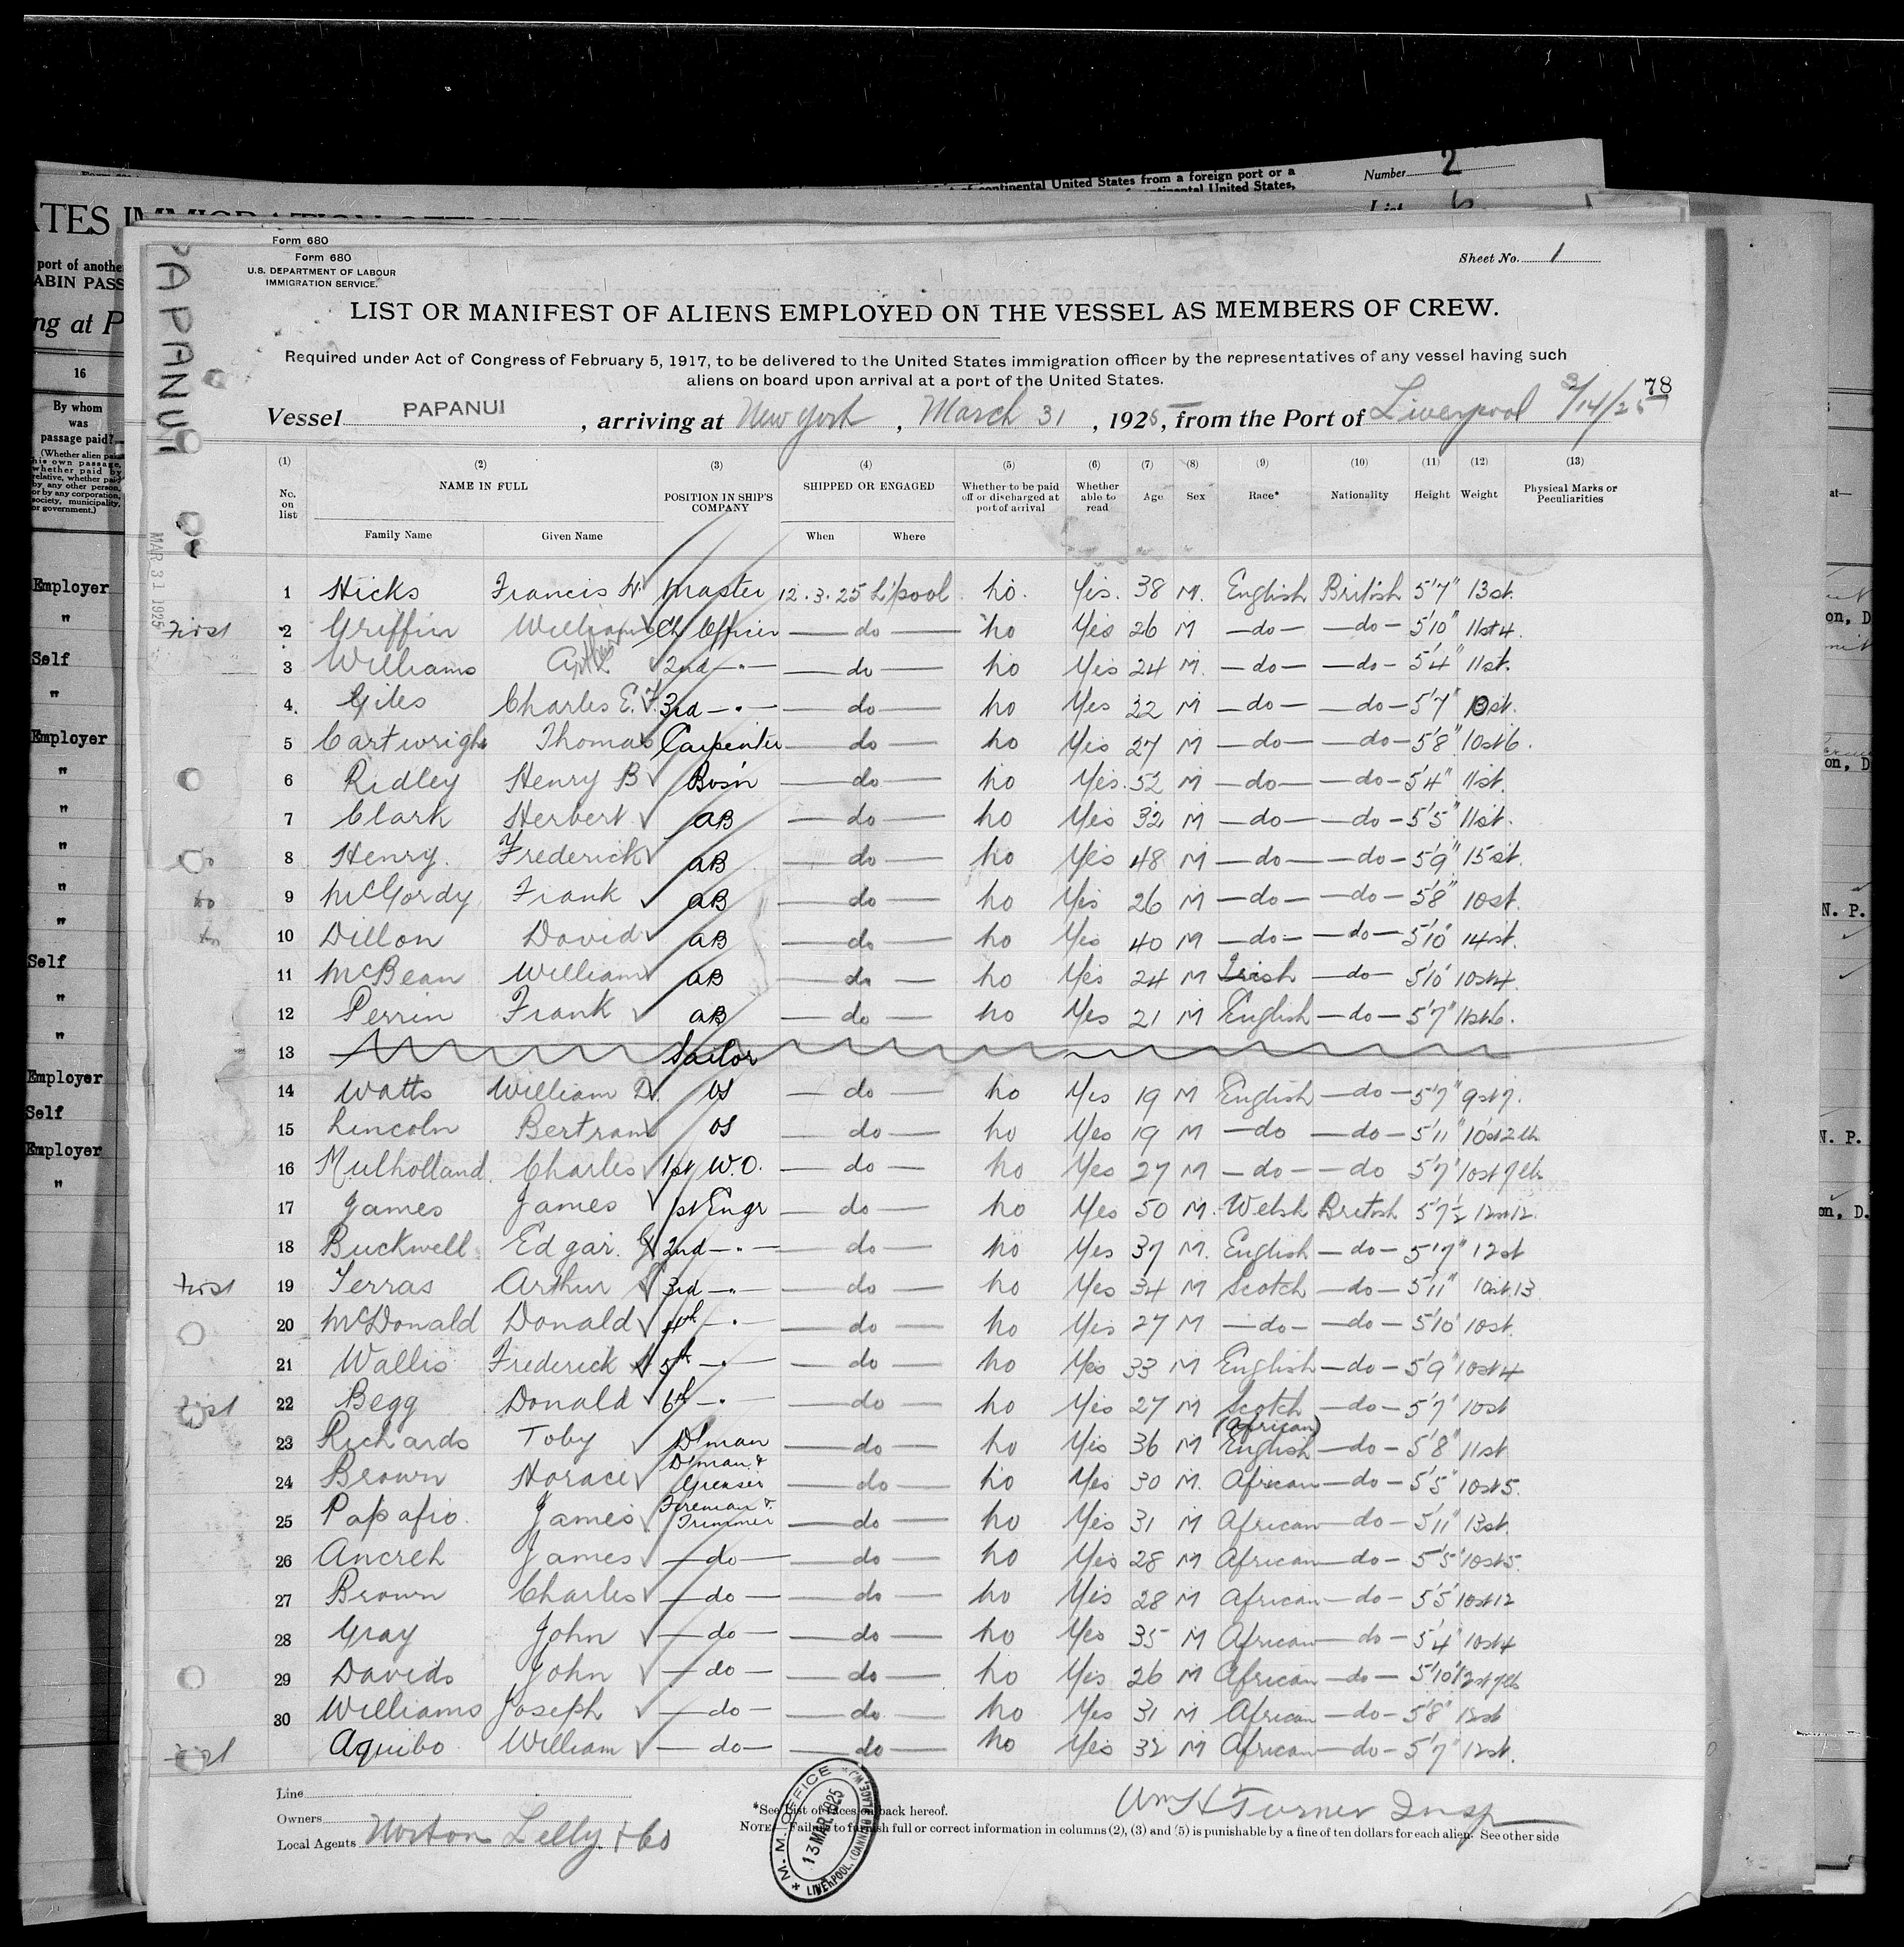 Number 2
ATES IMMIGRATION OFFICER
port of another
CABIN PASS
ng at P
16
By whom
was
passage paid?
(Whether alien paid
his own passage,
whether paid by
relative, whether paid
by any other person,
or by any corporation,
society, municipality,
or government.)
Employer
"
Self
"
Employer
"
"
"
"
"
Self
"
"
Employer
Self
Employer
"
PAPANUI
MAR 31 1925
Form 680
Form 680
U.S. DEPARTMENT OF LABOUR
IMMIGRATION SERVICE.
Sheet No. 1
LIST OR MANIFEST OF ALIENS EMPLOYED ON THE VESSEL AS MEMBERS OF CREW.
Required under Act of Congress of February 5, 1917, to be delivered to the United States immigration officer by the representatives of any vessel having such
aliens on board upon arrival at a port of the United States.
78
Vessel PAPANUI, arriving at New York, March 31, 1925, from the Port of Liverpool 3/14/25
(1) (2) (3) (4) (5) (6) (7) (8) (9) (10) (11) (12) (13)
No. on list NAME IN FULL Family Name Given Name POSITION IN SHIP'S COMPANY SHIPPED OR ENGAGED When Where Whether to be paid off or discharged at port of arrival Whether able to read Age Sex Race* Nationality Height Weight Physical Marks or Peculiarities
1 Hicks Francis W. Master 12.3.25 L'pool no. Yes. 38 M. English British 5'7" 13st.
First 2 Griffin William Ch Officer —do— no Yes 26 M —do— —do— 5'10" 11st4.
3 Williams Arthur 2nd —"— —do— no Yes 24 M. —do— —do— 5'4" 11st.
4. Giles Charles E. F. 3rd —"— —do— no Yes 22 M —do— —do— 5'7" 10st.
5 Cartwright Thomas Carpenter —do— no Yes 27 M —do— —do— 5'8" 10st6.
6 Ridley Henry B Bos'n —do— no Yes. 52 M —do— —do— 5'4" 11st.
7 Clark Herbert AB —do— no Yes 32 M —do— —do— 5'5" 11st.
8 Henry Frederick AB —do— no Yes 48 M —do— —do— 5'9" 15st.
do 9 McGordy Frank AB —do— no Yes 26 M —do— —do— 5'8" 10st.
10 Dillon David AB —do— no Yes 40 M —do— —do— 5'10" 14st.
11 McBean William AB —do— no Yes 24 M Irish —do— 5'10" 10st4.
12 Perrin Frank AB —do— no Yes 21 M English —do— 5'7" 11st6.
13 Sailor
14 Watts William D. OS —do— no Yes 19 M English —do— 5'7" 9st7.
15 Lincoln Bertram OS —do— no Yes 19 M —do —do— 5'11" 10st2lb
16 Mulholland Charles 1st W.O. —do— no Yes 27 M —do— —do 5'7" 10st7lb
17 James James 1st Engr —do— no Yes 50 M. Welsh British 5'7½ 12st12
18 Buckwell Edgar. G 2nd —"— —do— no Yes 37 M. English —do— 5'7" 12st
First 19 Terras Arthur 3rd —"— —do— no Yes 34 M Scotch —do— 5'11" 10st.13
20 McDonald Donald 4th —"— —do— no Yes 27 M —do— —do— 5'10" 10st.
21 Wallis Frederick 5th —"— —do— no Yes 33 M English —do— 5'9" 10st4
First 22 Begg Donald 6th —"— —do— no Yes 27 M Scotch —do— 5'7" 10st
23 Richards Toby D'man —do— no Yes 36 M (African) English —do— 5'8" 11st
24 Brown Horace D'man & Greaser —do— no Yes 30 M. African —do— 5'5" 10st5.
25 Papafio James Fireman & Trimmer —do— no Yes 31 M African —do— 5'11" 13st.
26 Ancreh James —do— —do— no Yes 28 M African —do— 5'5" 10st5.
27 Brown Charles —do— —do— no Yes 28 M African —do— 5'5" 10st12
28 Gray John —do— —do— no Yes 35 M African —do— 5'4" 10st4
29 Davids John —do— —do— no Yes 26 M African —do— 5'10" 12st7lb
30 Williams Joseph —do— —do— no Yes 31 M African —do— 5'8" 12st
Aquibo William —do— —do— no Yes 32 M African —do— 5'7" 12st.
Line
Owners
Local Agents Norton Lilly & Co
*See List of races on back hereof.
NOTE—Failure to furnish full or correct information in columns (2), (3) and (5) is punishable by a fine of ten dollars for each alien. See other side
Wm H Turner Insp
M. M. OFFICE
13 MAR 1925
on, D
on, D
N. P.
N. P.
on, D.